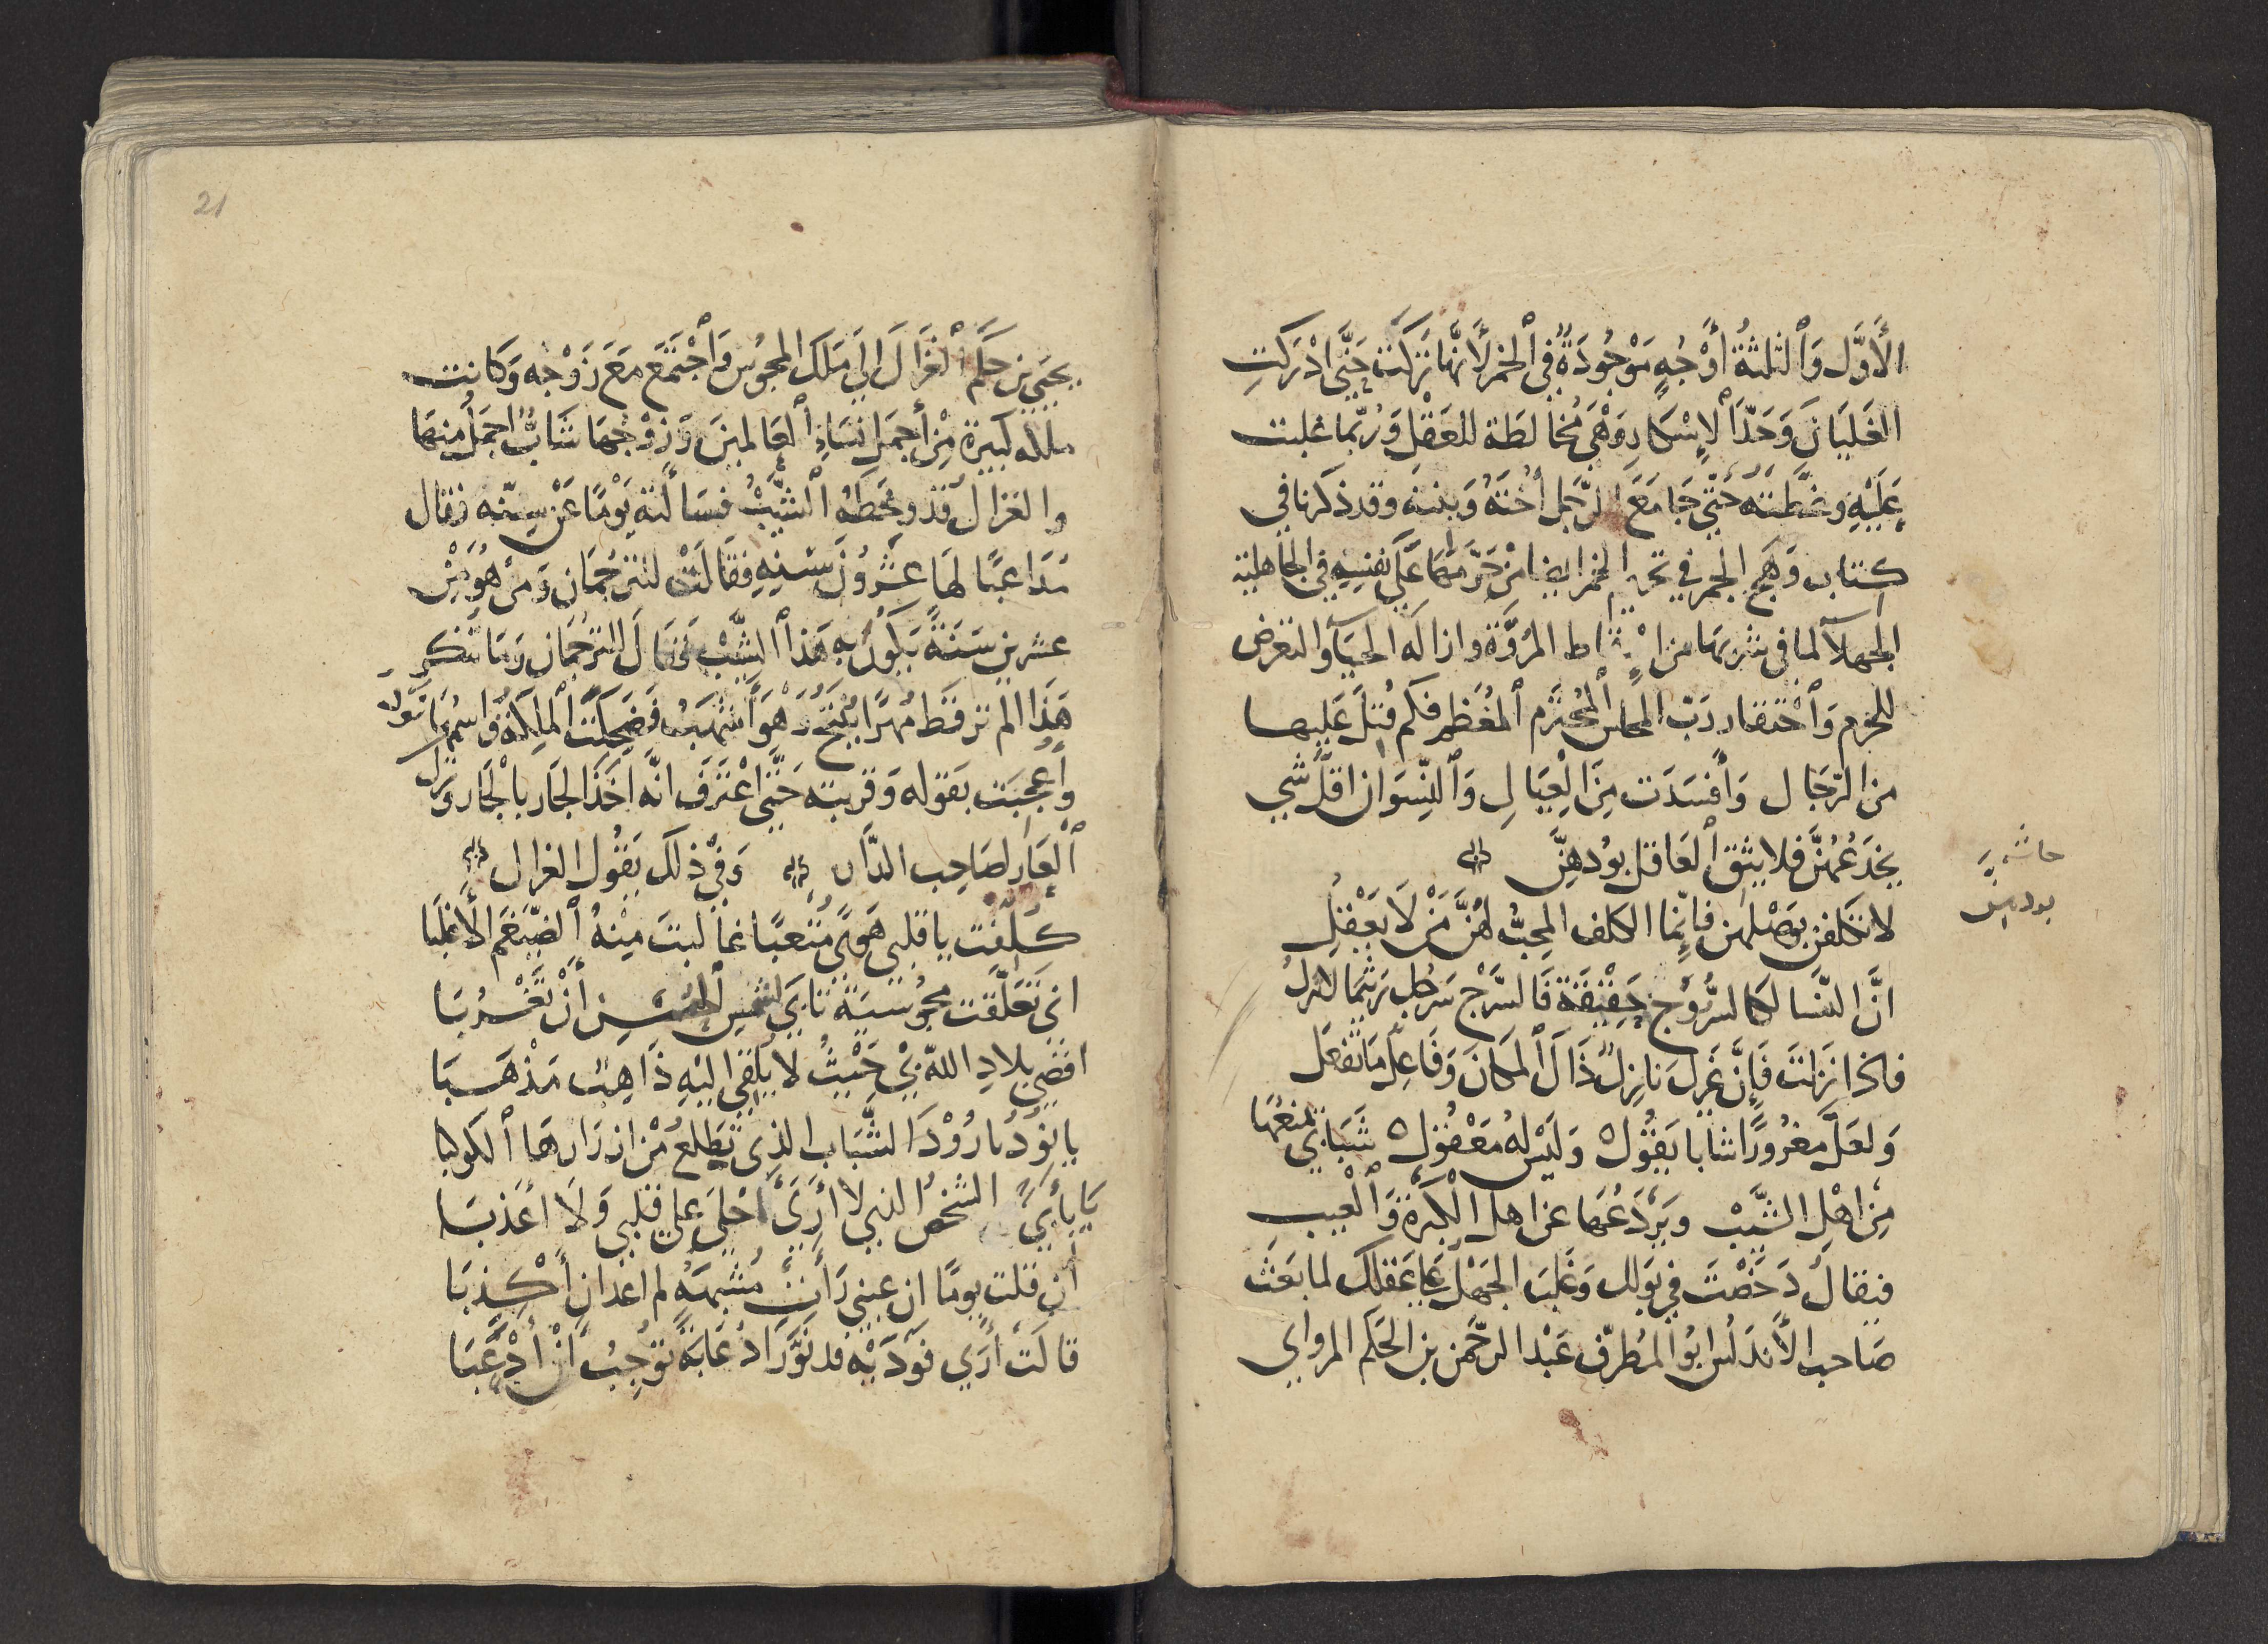 الأَوَّل وَٱلثلثةُ أَوْجُهٍ مَوْجُودَةٌ في ٱلخمر لأَنّهَا تركت حَتَّى ادْرَكتِ
الغَليَانَ وَحَدَّ ٱلإِسْكَارِ وَهْىَ مُخَالطَة للعَقْلِ وَرُبّما غلبت
عَلَيْهِ وغطَّتهُ حَتّي جَامَعَ الرَّجل أُخْتَهُ وَبنته وقد ذكرنا في
كتاب وَهَج الجمر في تحريم الخمر ايضا مَن حَرّمهَا عَلَى نَفْسِهِ في الجَاهليّة
الجَهلآ لما في شربهَا من إِسْقاط المُرُوَّة وازالَه الحيَآ والتعَرض
للحرم وَٱحْتقار رَبّ المجلس ٱلمُحْتَرم ٱلمُعَظم فكم قُتِلَ عَليهَا
من الرّجَال وَأَفْسَدَت مِنَ الْعِيَالِ وَٱلنِّسوَان اقلّ شي
يخدَعُهنَّ فلا يثق ٱلعَاقل بوُدهِنَّ
حاشية
بودهن
لا تكلفن بوَصْلهن فإنّما الكلف المحبُّ لهُنَّ مَنْ لَا يَعْقِلِ
انَّ النّسا لكالسّرُوج حَقِيْقَة فَالسَّرْج سَرجُك رَيثما لا تنزلُ
فاذا نزلت فَإِنّ غَيركَ نازِلٌ ذَا لَ ٱلمكَانَ وَفَاعِلٌ مَا تَفعَل
وَلعَلَّ مَغرُورًا شابا يَقُول وَليْس لهُ مَعْقُول شَبَابي يمنعُهَا
مِن اهْلِ الشَّيْب وَيَرْدَعُهَا عن اهل الْكبرَة وَٱلْعيب
فيقالُ دَحَضْتَ في بَولك وَغَلبَ الجَهْلُ عَلى عَقلكَ لما بعَث
صَاحب الأَندَلُس ابُو المُطرّف عَبْد الرحّمن بن الحَكم المرواني
21
يحيَى بن حَكَم ٱلغَزَالَ الي مَلك المجوُس وَٱجْتَمَعَ مَعَ زَوْجه وَكانت
ملكه كبيرة مِنْ أَجمَل نسَاءِ ٱلعَالمينَ وَزوْجهَا شَابٌّ اجمَلُ منهَا
والغزال قد وخَطهُ ٱلشَّيْبُ فسَاَلتهُ يَوْمًا عَنْ سِنّه فقال
مُدَاعبًا لهَا عِشْرُوْنَ سَنه فقالَتْ للتّرجُمَان وَمنْ هُوَ مِنْ
عشرين سَنَةً يَكوْنُ به هَذا الشَّيْب فَقَالَ للتّرجُمَان وَمَا تنكر
هَذا الم تر قط مُهرًا يُنْتَجُ وَهْوَ أَشْهَبُ فضَحكَت ٱلملكَةُ وَاسمُهَا تودَ
وأُعجبَت بقوله وَقربته حَتَّى اعْتَرَفَ انّه اخَذَ الجَار بالْجَار وَترك
ٱلعَار لصَاحب الدَّار وَفي ذلكَ يَقُول الغزال
كُلِّفْت يا قلبى هَوًى مُتْعبًا غالبتَ مِنْهُ ٱلضَّيْغَم الأَغلبَا
انى تَعَلَّقت مجُوُسيَة تابَى لشَمْس ٱلحُسْن أَنْ تَغْرُبَا
اقصَى بلادِ الله في حَيْثُ لا يُلقَى اليْهِ ذَاهِبُ مَذْهَبَا
يا نوُدُ يا رُوْدَ الشَّبَاب الذِى تَطلعُ مِنْ ازرَارهَا ٱلكوكبا
يَا بأَبىَ الشخصُ الذي لا أَرَى أَحْلىَ على قلبى وَلَا أعَذبَا
أن قلت يومًا ان عينى رَأَت مُشْبهَهُ لم اعدان أَكْذِبَا
قالَتْ أَرَى فَوْدَيْهِ قد نَوَّرَا دُعَابَةً تُوْجِبُ أَنْ أَدْعَبَا